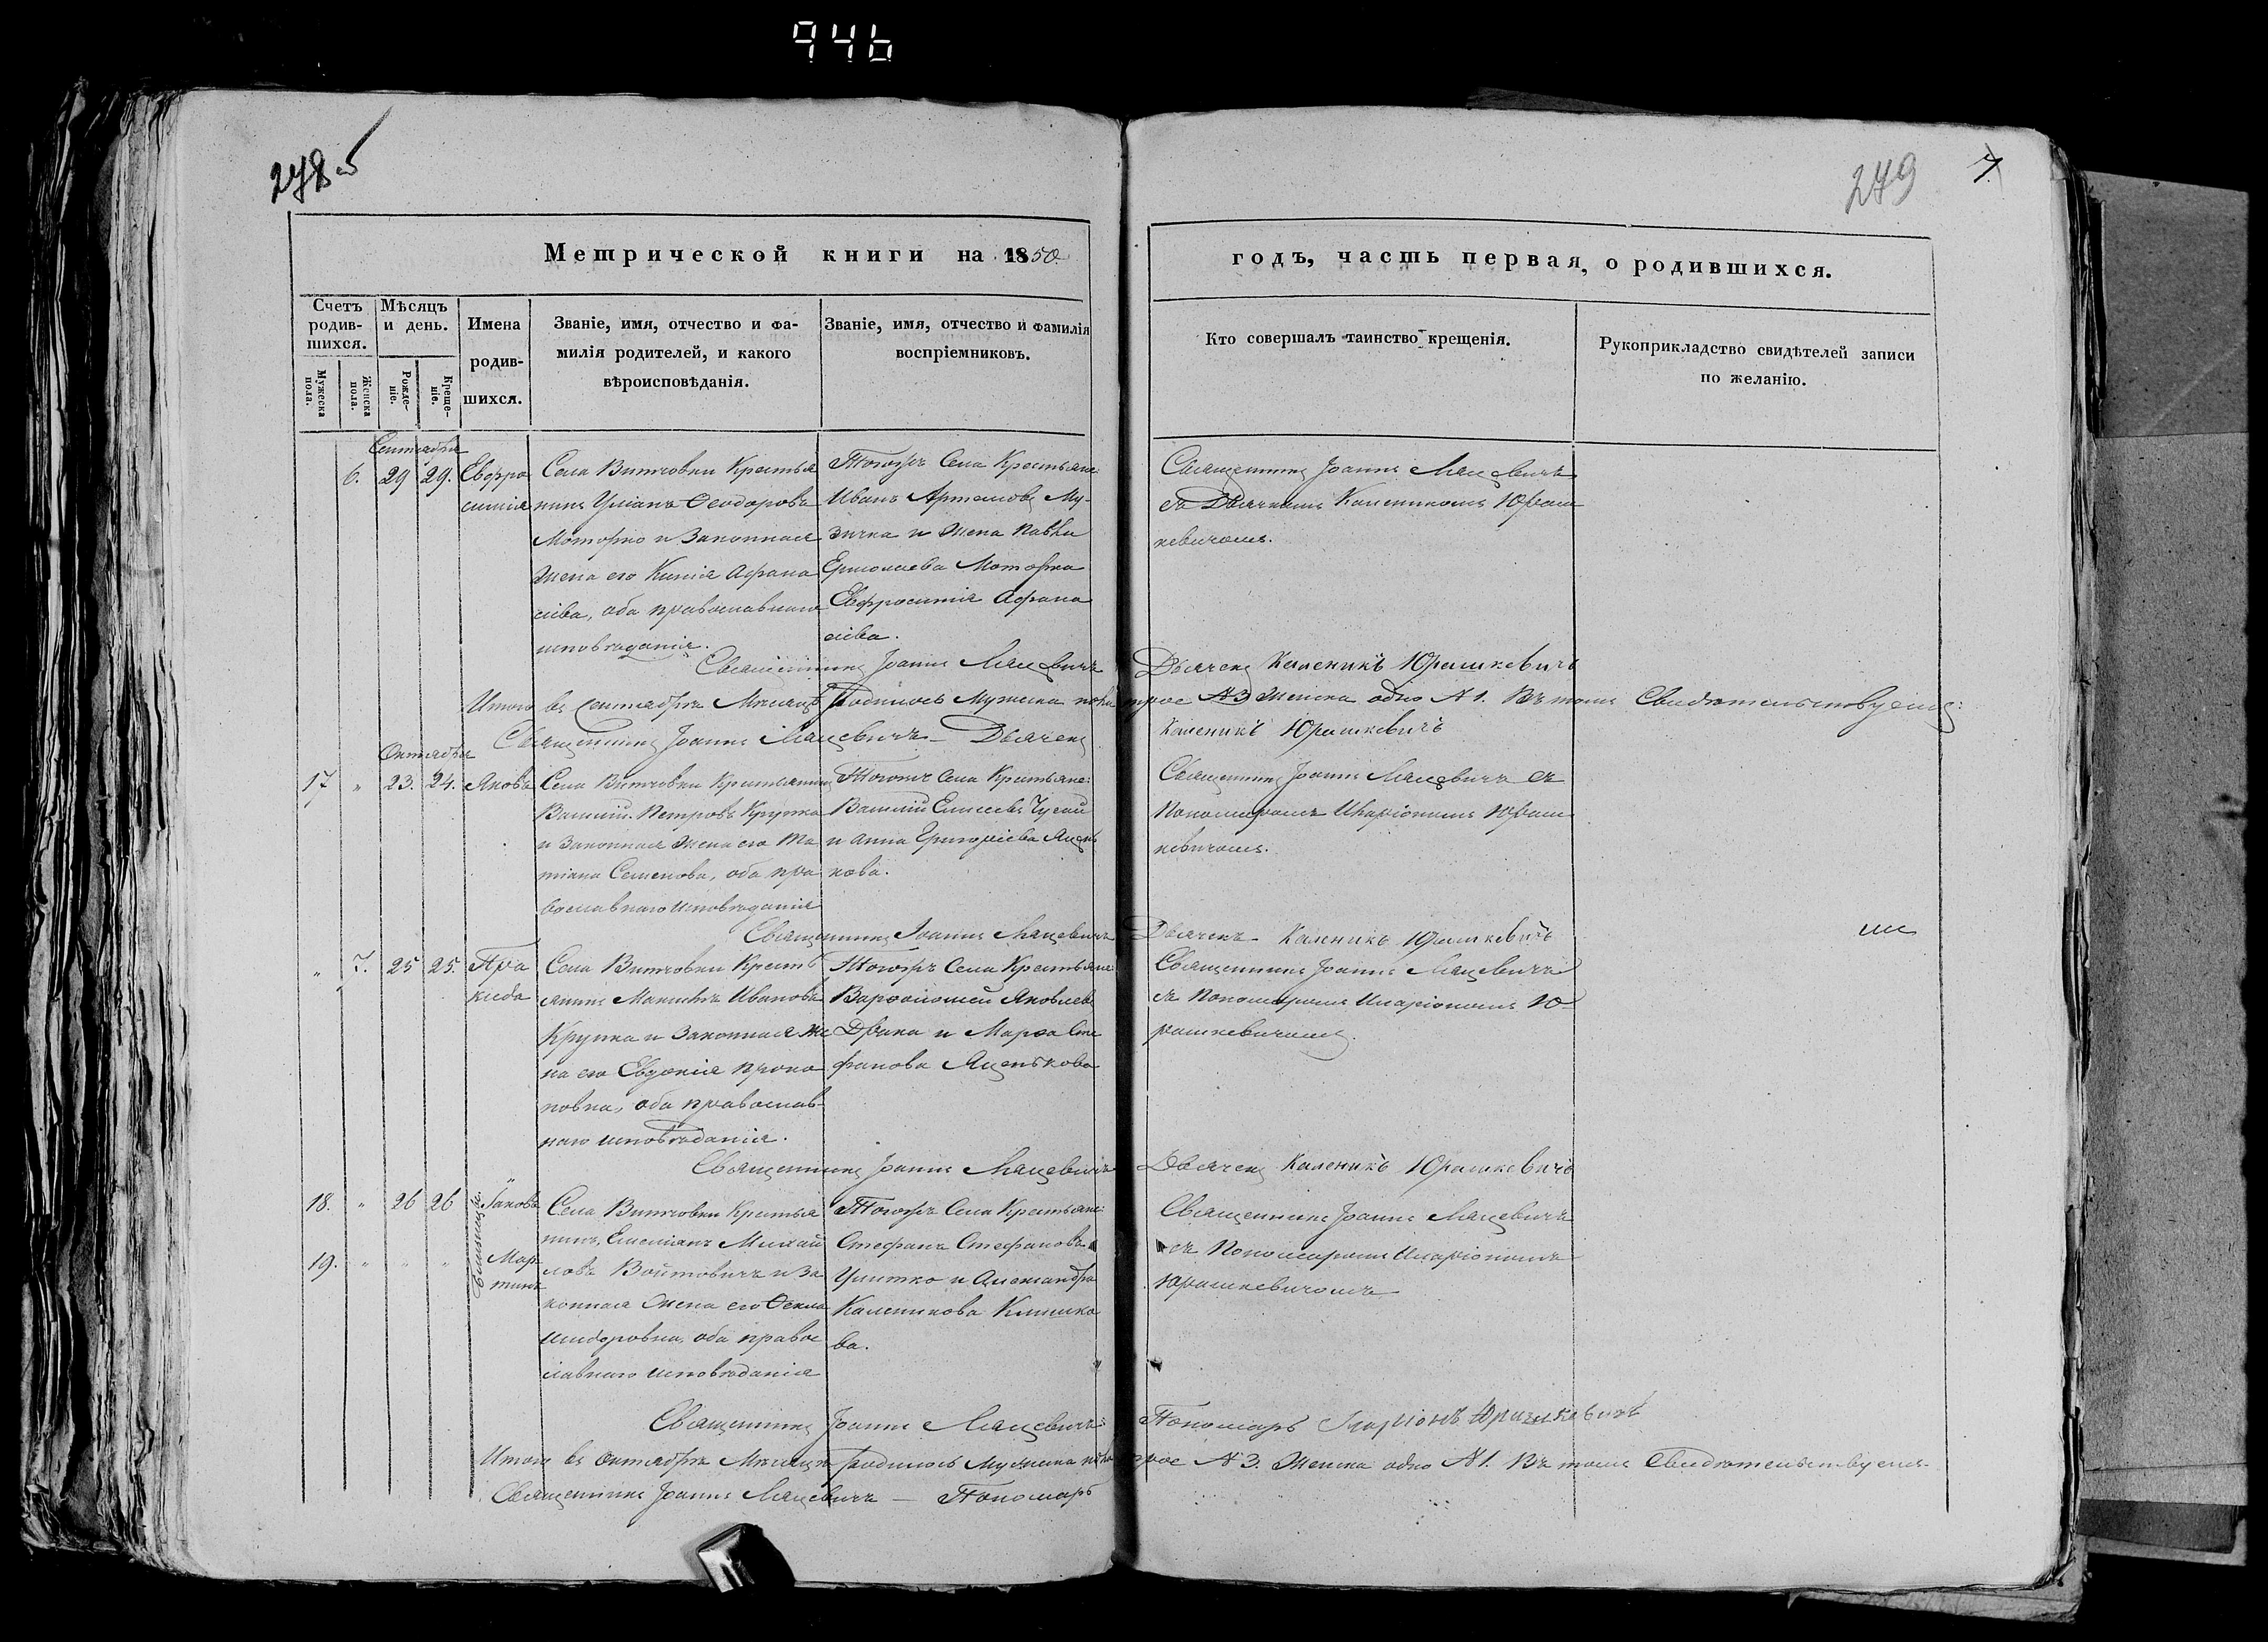 946
278 об
279
7.
Метрической книги на 1850
годъ, часть первая, о родившихся.
Счетъ родив-
шихся.
Мѣсяцъ
и день.
Имена
родив-
шихся.
Званіе, имя, отчество и фа-
милія родителей, и какого
вѣроисповѣданія.
Званіе, имя, отчество и фамилія
воспріемниковъ.
Кто совершалъ таинство крещенія.
Рукоприкладство свидѣтелей записи
по желанію.
Мужеска
пола.
Женска
пола.
Рожде-
ніе.
Креще-
ніе.
Сентября
6. 29 29. Евфро
синія
Села Витчовки Крестья
нинъ Уліанъ Ѳеодоровъ
Моторко и Законная
жена его Киліа Афана
сіева, оба православнаго
исповѣданія.
Тогожъ Села Крестьяне:
Иванъ Артемовъ Му-
зичка и Жена Павла
Ермолаева Моторка
Евфросинія Афана
сіева.
Священникъ Іоаннъ Мацевичъ
съ Дьячкомъ Каленикомъ Юраш
кевичомъ.
Священникъ Іоаннъ Мацевичъ Дьячекъ Каленикъ Юрашкевичъ
Итого въ Сентябрѣ Мѣсяцѣ Родилось Мужеска пола трое №3 Женска одно №1. Въ томъ Свидѣтельствуемъ:
Священникъ Іоаннъ Мацевичъ – Дьячекъ Каленикъ Юрашкевичъ
Октября
17 " 23. 24. Яковъ
Села Витчовки Крестьянинъ
Василій Петровъ Крупка
и Законная Жена его Та
тіана Семенова, оба пра
вославнаго исповѣданія
Тогожъ Села Крестьяне:
Василій Елисеевъ Чугай
и Анна Григоріева Яцень
кова.
Священникъ Іоаннъ Мацевичъ съ
Пономаремъ Иларіономъ Юраш
кевичомъ.
Священникъ Іоаннъ Мацевичъ Дьячекъ Каленикъ Юрашкевичъ
" 7. 25 25. Пра
кседа
Села Витчовки Кресть
янинъ Максимъ Ивановъ
Крупка и Законная Же
на его Евдокія Проко
повна, оба православ-
наго исповѣданія.
Тогожъ Села Крестьяне:
Варѳоломей Яковлевъ
Драка и Марѳа Сте
фанова Яценькова
Священникъ Іоаннъ Мацевичъ
съ Пономаремъ Иларіономъ Ю-
рашкевичомъ.
Священникъ Іоаннъ Мацевичъ Дьячекъ Каленикъ Юрашкевичъ
18. " 26 26 Іаковъ
19. " " " Мар
тинъ
близнецы
Села Витчовки Крестья
нинъ, Емеліанъ Михай
ловъ Войтовичъ и За
конная Жена его Ѳекла
Исидоровна, оба право
славнаго исповѣданія
Тогожъ Села Крестьяне:
Стефанъ Стефановъ
Улитко и Александра
Каленикова Климко
ва.
Священникъ Іоаннъ Мацевичъ
съ Пономаремъ Иларіономъ
Юрашкевичомъ
Священникъ Іоаннъ Мацевичъ: Пономарь Иларіонъ Юрашкевичъ
Итого въ Октябрѣ Мѣсяцѣ родилось Мужеска пола трое №3. Женска одно №1. Въ томъ Свидѣтельствуемъ
Священникъ Іоаннъ Мацевичъ – Пономарь